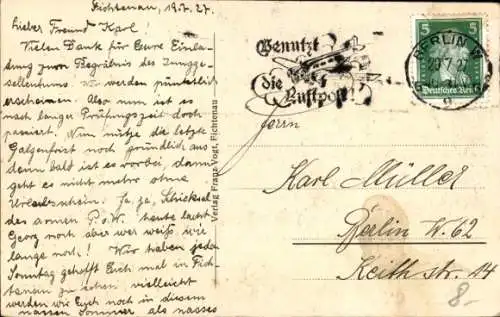 Fichtenau, 19.7.27.
Lieber Freund Karl!
Vielen Dank für Eure Einla-
dung zum Begräbnis des Jungge-
sellentums. Wir werden pünktlich
erscheinen. Also nun ist es
nach langer Prüfungszeit doch
passiert. Nun nütze die letzte
Galgenfrist noch gründlich aus
denn bald ist es vorbei, dann
geht es nicht mehr ohne
Urlaubschein. Ja, ja, Schicksal
des armen P.o.W. heute lacht
Georg noch aber wer weiß, wie
lange noch! Wir haben jeden
Sonntag gehofft Euch mal in Fich-
tenau zu sehen. Vielleicht
werden wir Euch noch in diesem
nassen Sommer als nasses
Verlag Franz Vogt, Fichtenau
Benutzt
die
Luftpost!
5
5
BERLIN W
9
Deutsches Reich
Herrn
Karl Müller
Berlin W. 62
Keith str. 14
8.-